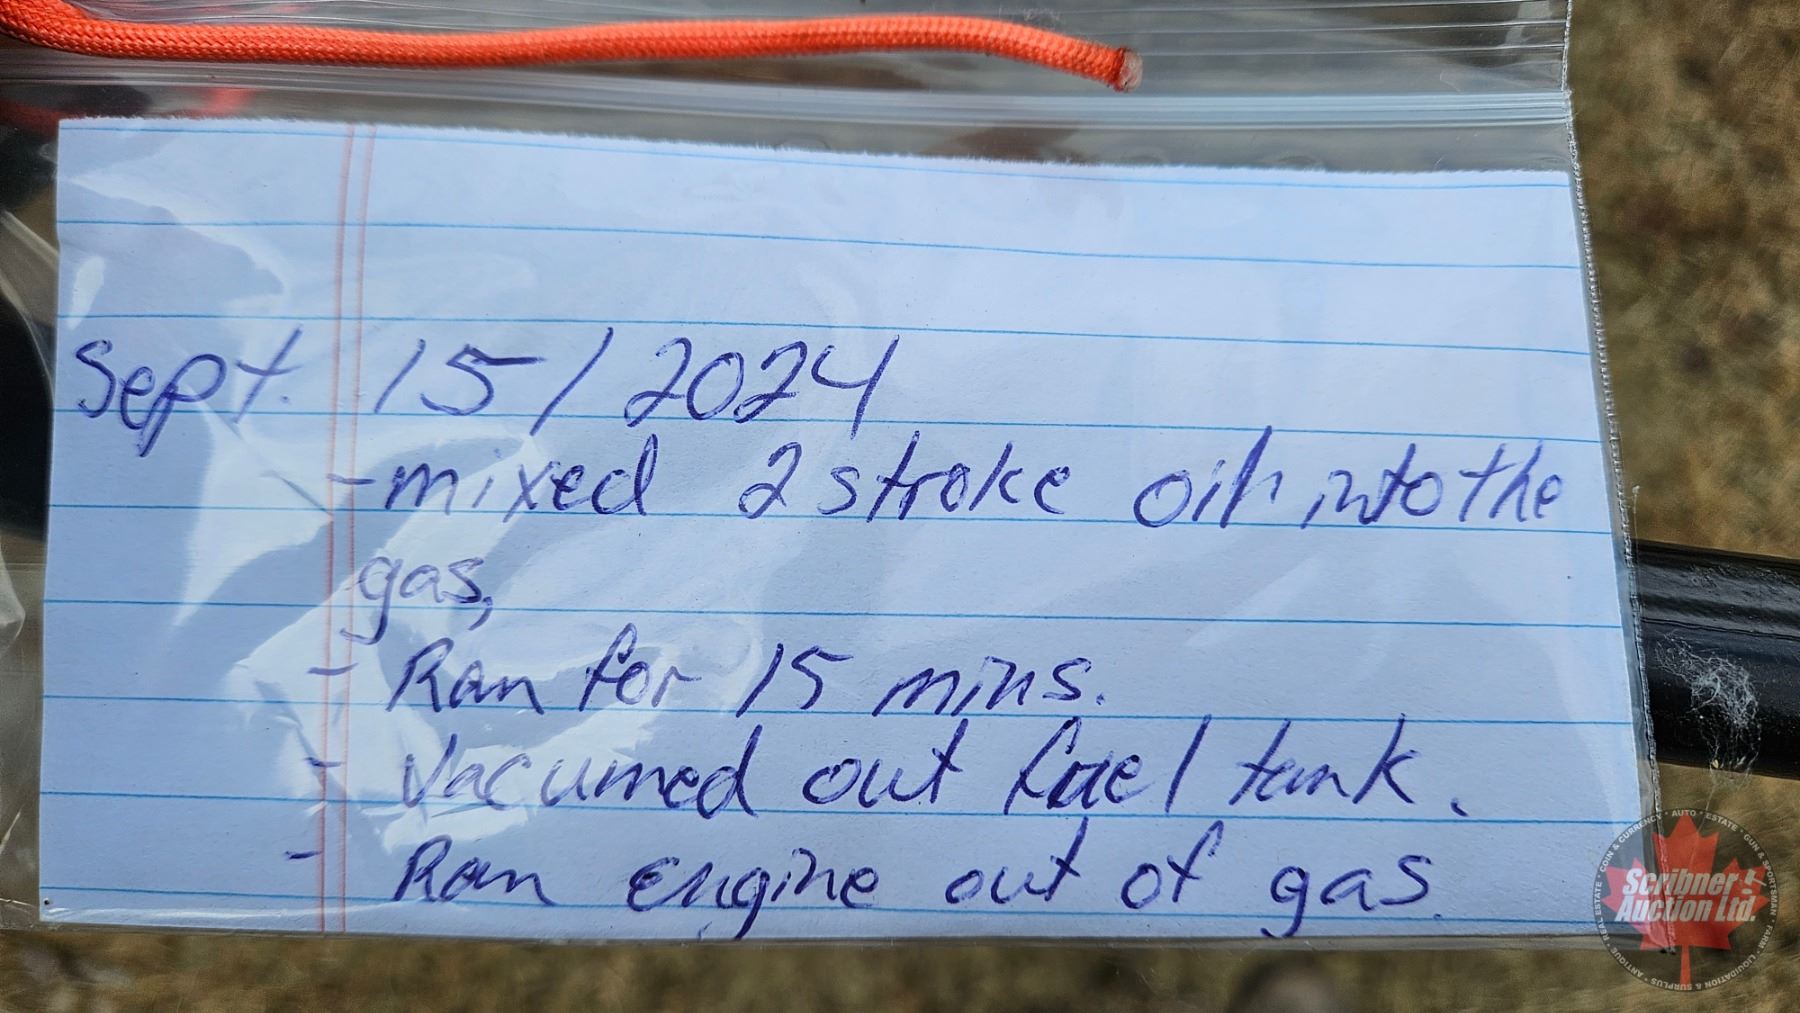 Sept. 15/2024
-mixed 2 stroke oil into the
gas,
- Ran for 15 mins.
- Vacumed out fuel tank.
- Ran engine out of gas.
Scribner
Auction Ltd.
AUTO • ESTATE • GUN & SPORTSMAN • FARM • LIQUIDATION & SURPLUS • ANTIQUE • REAL ESTATE • COIN & CURRENCY •